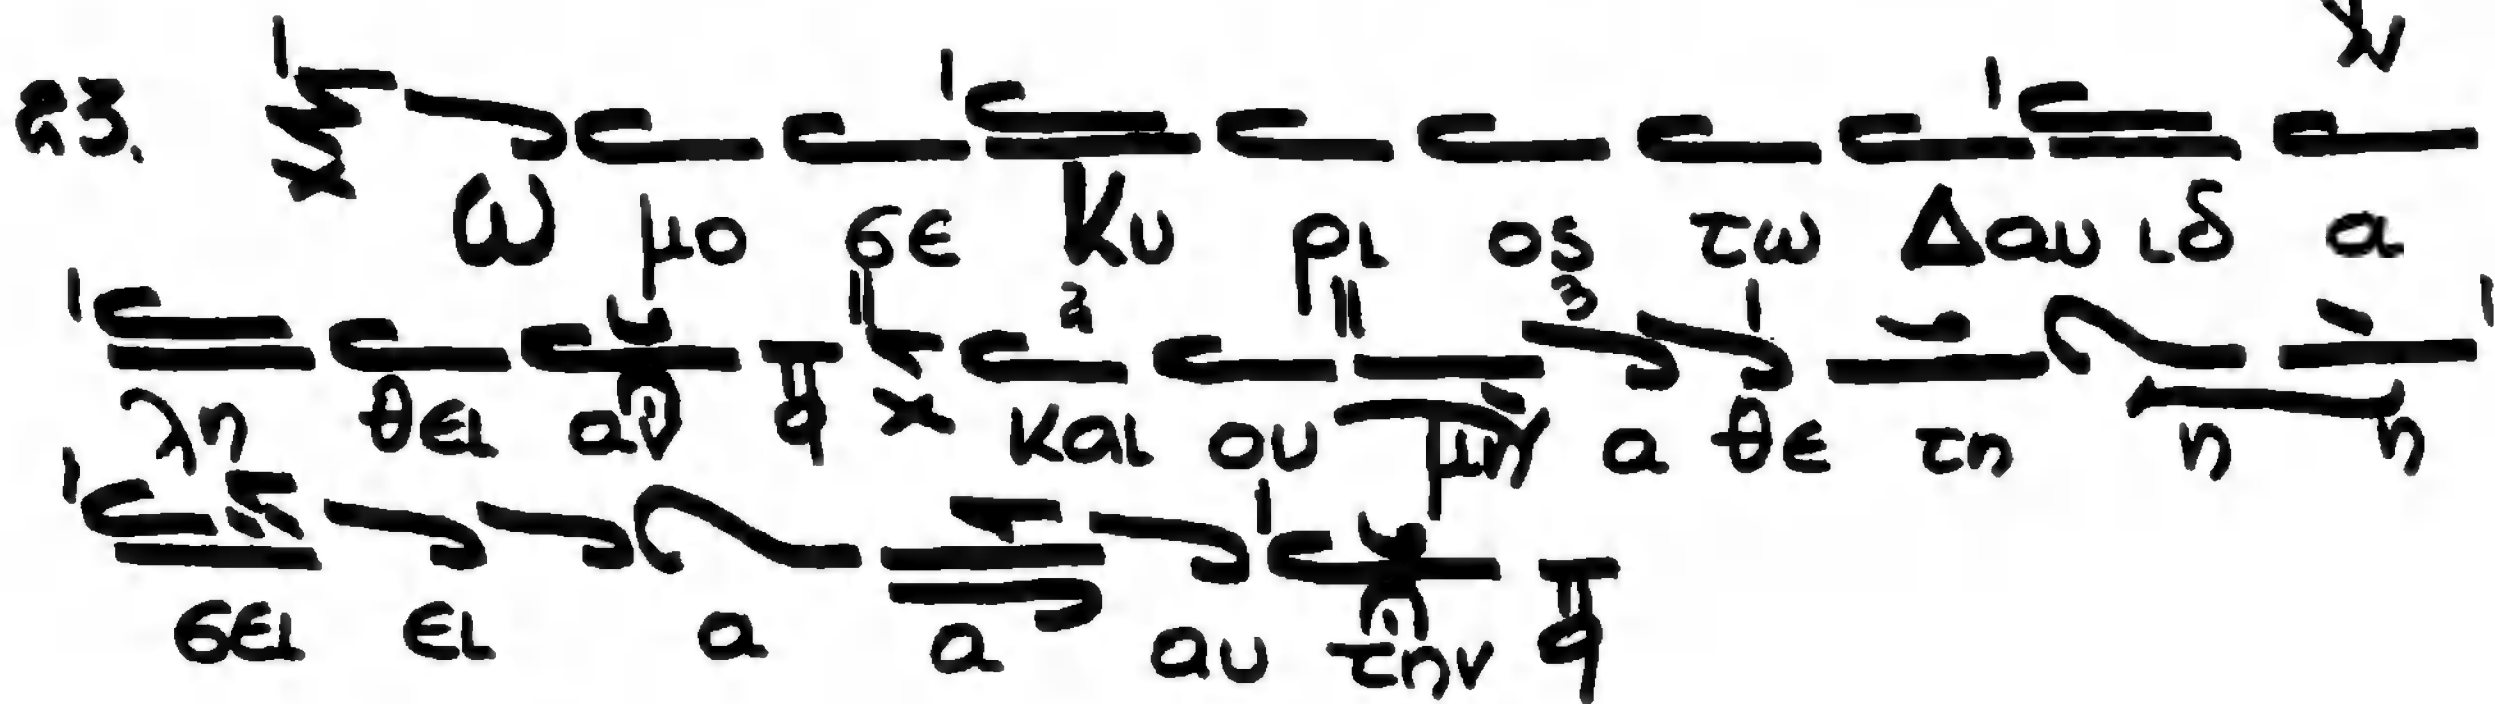 23. Ω μο σε Κυ ρι ος τω Δαυ ιδ α
λη θει αν και ου μη α θε τη η η
σει ει α α αυ την